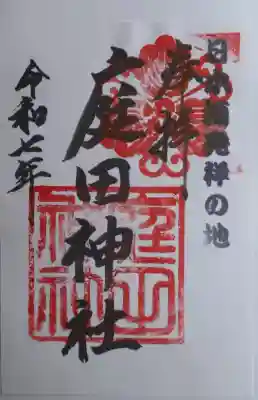 日本酒発祥の地
奉拝
庭田神社
令和七年